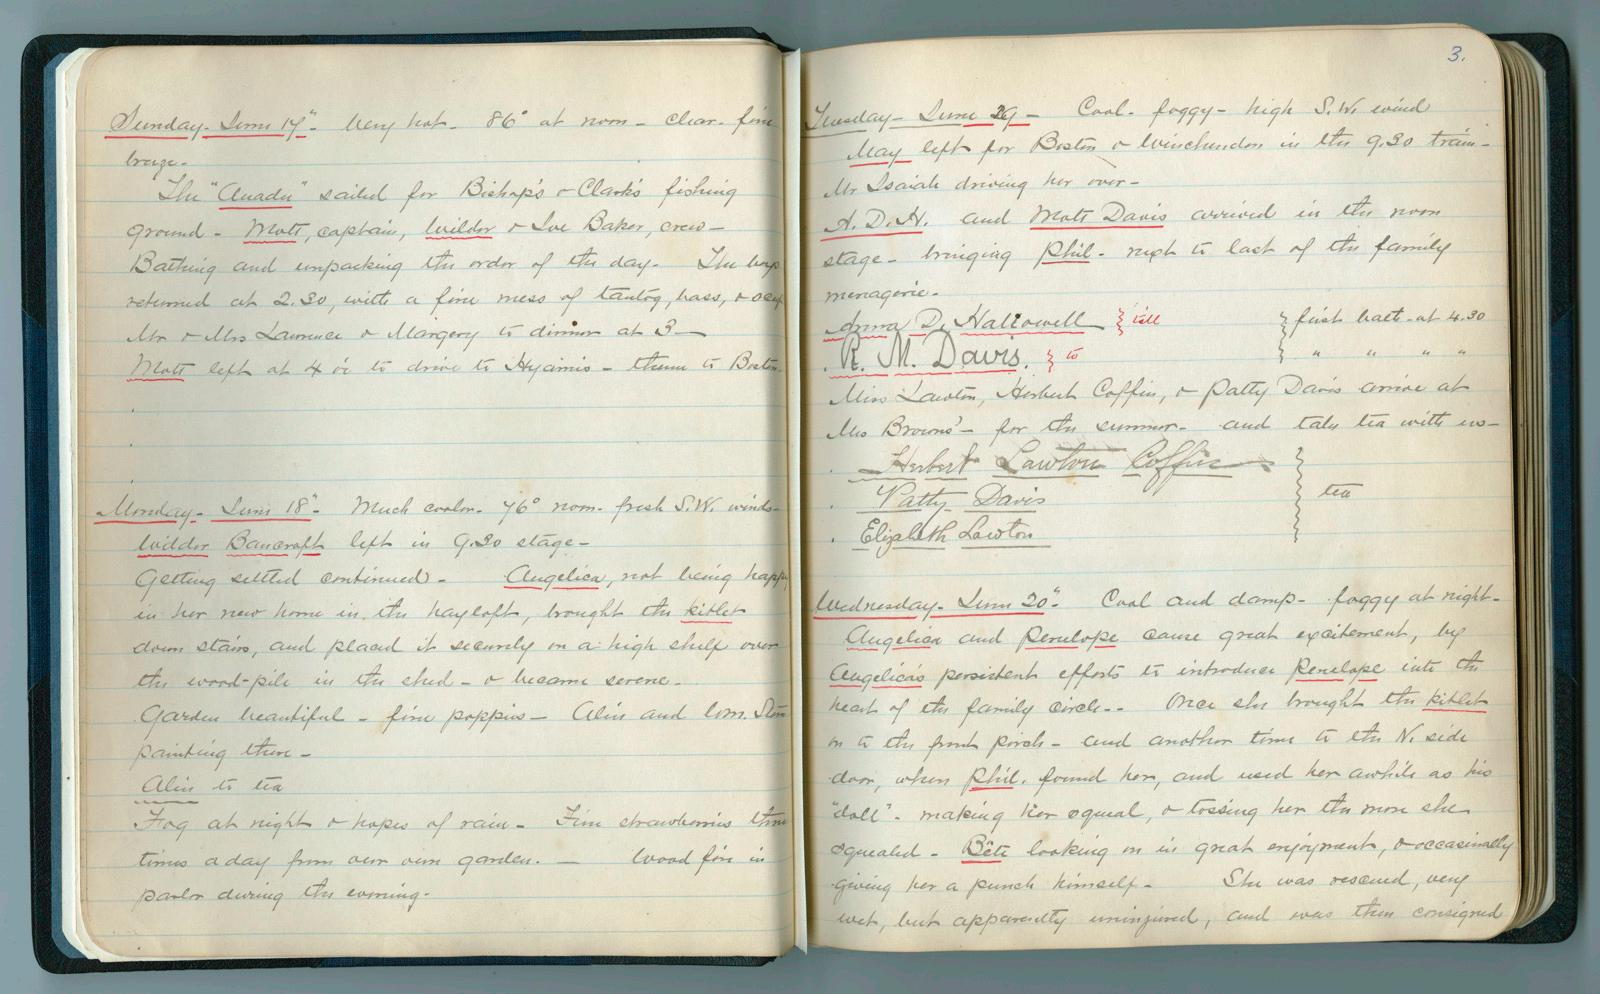 Sunday- June 17"- Very hot- 86° at noon- clear- fine
breeze-
The "Anadu" sailed for Bishop's & Clark's fishing
ground- Mott, captain, Wilder & Joe Baker, crew-
Bathing and unpacking the order of the day- The boys
returned at 2.30, with a fine mess of tautog, bass, &
Mr & Mrs Lawrence & Margery to dinner at 3-
Mott left at 4 to drive to Hyannis- thence to Boston-
Monday- June 18"- Much cooler- 76° noon- fresh S.W. winds-
Wilder Bancroft left in 9.30 stage-
Getting settled continued- Angelica, not being happy
in her new home in the hayloft, brought the kitlet
down stairs, and placed it securely on a high shelf over
the wood-pile in the shed- & became serene-
Garden beautiful- fine poppies- Alice and
painting there-
Alice to tea
Fog at night & hopes of rain- Fine strawberries three
times a day from our own garden.- Wood fire in
parlor during the evening-
3.
Tuesday- June 19- Cool- foggy- high S.W. wind
May left for Boston & Winchendon in the 9.30 train-
Mr Isaiah driving her over-
A.D.H. and Mott Davis arrived in the noon
stage- bringing Phil- next to last of the family
menagerie-
Anna D. Hallowell } till } first bath- at 4.30
R. M. Davis. } to } " " " "
Miss Lawton, Herbert Coffin, & Patty Davis arrive at
Mrs Browns'- for the summer- and take tea with us-
Herbert Lawton Coffin
Patty Davis } tea
Elizabeth Lawton
Wednesday- June 20"- Cool and damp- foggy at night-
Angelica and Penelope cause great excitement, by
Angelica's persistent efforts to introduce Penelope into the
heart of the family circle-- Once she brought the kitlet
on to the front porch- and another time to the N. side
door, where Phil. found her, and used her awhile as his
"doll"- making her squeal, & tossing her the more she
squealed- Bête looking on in great enjoyment, & occasionally
giving her a punch himself- She was rescued, very
wet, but apparently uninjured, and was then consigned